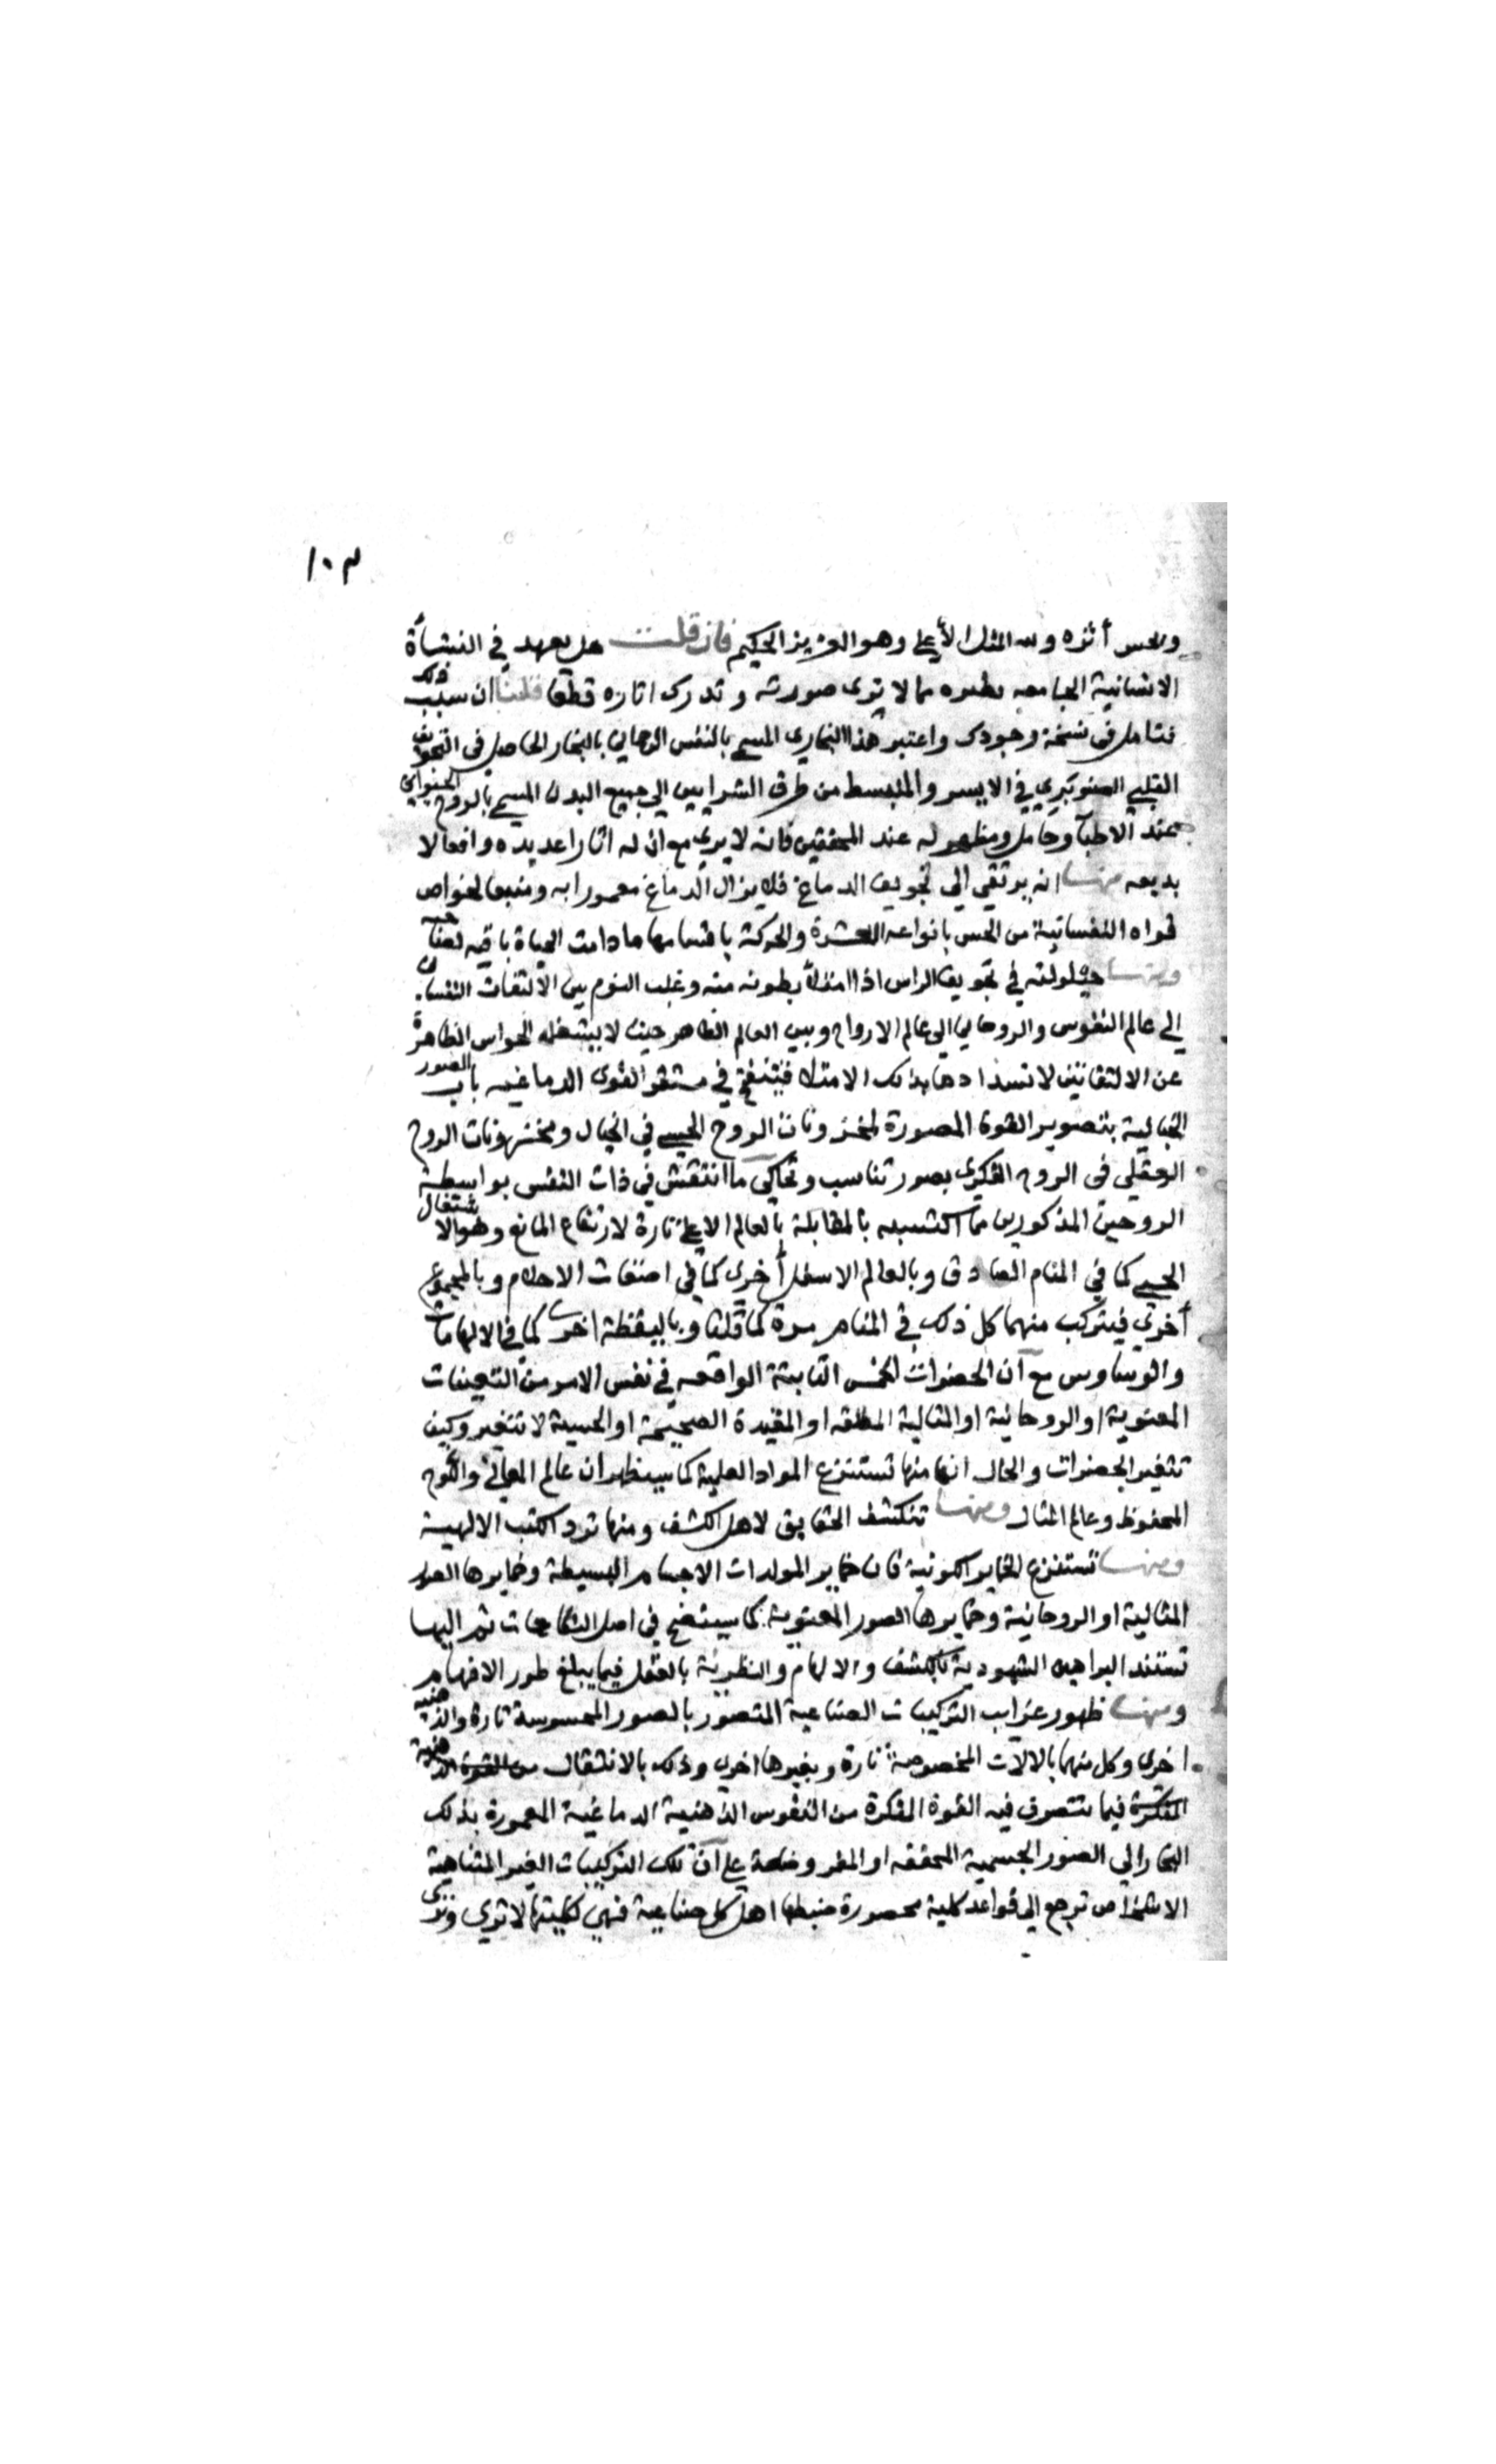 ١٠٣
ويحس أثره ولله المثل الأعلى وهو العزيز الحكيم فان قلت هل يعهد في النشأة
الانسانية الجامعه نظيره مما لا ترى صورته وتدرك اثاره قطعا قلنا ان سبب ذلك
فتامل في نسخة وجودك واعتبر هذا البخاري المسمى بالنفس الرحماني بالبخار الحاصل في التجويف
القلبي الصنوبري في الايسر والمنبسط من طرق الشرايين الى جميع البدن المسمى بالروح الحيواني
عند الاطبآ وحامل ومظهر له عند المحققين فانه لا يرى مع ان له اثارا عديده وافعالا
بديعه منها انه يرتقي الي تجويف الدماغ فلا يزال الدماغ معمورا به ومنبعا لخواص
قواه النفسانية من الحس بانواعه العشرة والحركة باقسامها ما دامت الحياة باقيه
ومنها حيلولته في تجويف الراس اذا امتلأ بطونه منه وغلب النوم بين الالتفات النفساني
الى عالم النفوس والروحاني الى عالم الارواح وبين العالم الظاهر حيث لا يشغله الحواس الظاهرة
عن الالتفاتين لانسدادها بذلك الامتلا فينفتح في مستقر القوى الدماغيه باب الصور
الخيالية بتصوير القوة المصورة لمخزونات الروح الحسي في الخيال ومخزونات الروح
العقلي في الروح الفكري بصور تناسب وتحاكي ما انتقش في ذات النفس بواسطة
الروحين المذكورين مما اكتسبه بالمقابلة بالعالم الاعلى تارة لارتفاع المانع وهو الاشتغال
الحسي كما في المنام الصادق وبالعالم الاسفل أخرى كما في اضغاث الاحلام وبالمجموع
أخرى فيتركب منهما كل ذلك في المنام مرة كما قلنا وباليقظة اخرى كما في الالهامات
والوساوس مع ان الحضرات الخمس الثابتة الواقعه في نفس الامر من التعينات
المعنوية او الروحانية او المثالية المطلقه او المقيدة الصحيحة او الحسية لا تتغير وكيف
تتغير الحضرات والحال انها منها تستنزع المواد العلمية كما سيظهر ان عالم المعاني واللوح
المحفوظ وعالم المثال ومنها تنكشف الحقايق لاهل الكشف ومنها ترد الكتب الالهية
ومنها تستنزع الخماير الكونية فان خماير المولدات الاجسام البسيطة وخمايرها الصور
المثالية او الروحانية وخمايرها الصور المعنوية كما سيتضح في اصل النكاحات ثم اليها
تستند البراهين الشهودية بالكشف والالهام والنظرية بالعقل فيما يبلغ طور الافهام
ومنها ظهور غرايب التركيبات الصناعية المتصور بالصور المحسوسة تارة والذهنية
اخرى وكل منهما بالالات المخصوصة تارة وبغيرها اخرى وذلك بالانتقال من القوة الذهنية
المفكرة فيما تتصرف فيه القوة المفكرة من النقوس الذهنية الدماغية المعمورة بذلك
البخار الي الصور الجسمية المحققه او المفروضة على ان تلك التركيبات الغير المتناهية
الاشخاص ترجع الي قواعد كلية محصورة ضبطها اهل كل صناعية فهي لكليتها لا ترى وترى